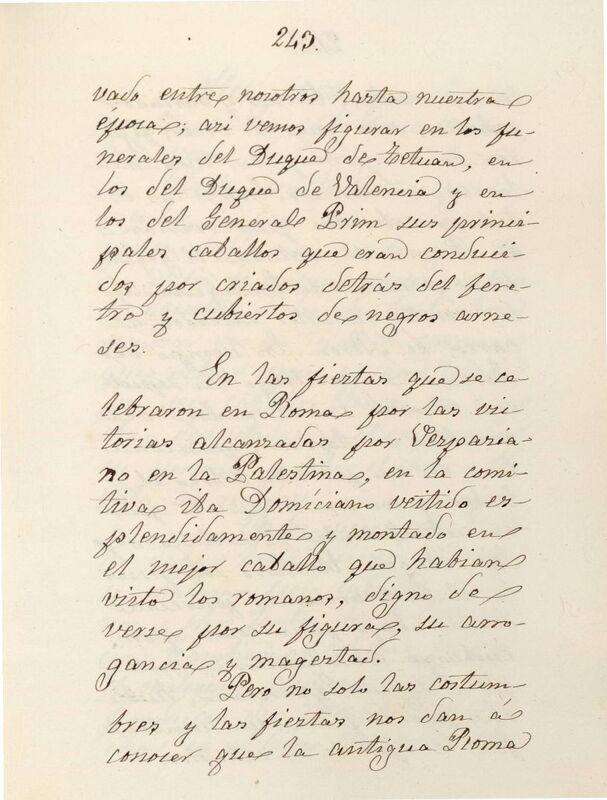 243.
vado entre nosotros hasta nuestra
época; asi vemos figurar en los fu-
nerales del Duque de Tetuan, en
los del Duque de Valencia y en
los del General Prim sus princi-
pales caballos que eran conduci-
dos por criados detrás del fere-
tro y cubiertos de negros arne-
ses.
En las fiestas que se ce
lebraron en Roma por las vic
torias alcanzadas por Vespasia-
no en la Palestina, en la comi-
tiva iba Domíciano vestido es-
plendidamente y montado en
el mejor caballo que habian
visto los romanos, digno de
verse por su figura, su arro-
gancia y magestad.
Pero no solo las costum-
bres y las fiestas nos dan á
conocer que la antigua Roma